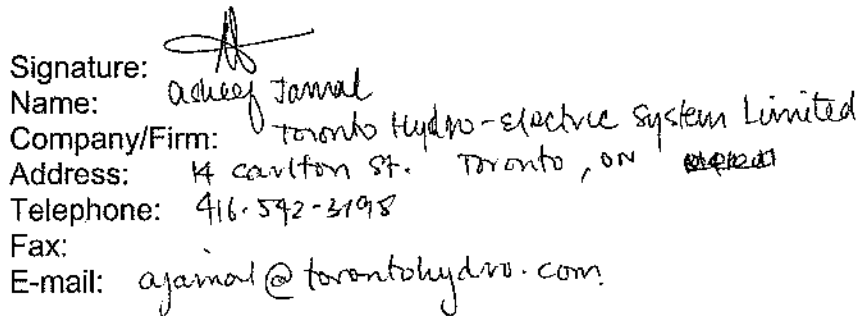 Signature:
Name: Asheef Jamal
Company/Firm: Toronto Hydro-Electric System Limited
Address: 14 Carlton St. Toronto, ON
Telephone: 416-542-3198
Fax:
E-mail: ajamal@torontohydro.com